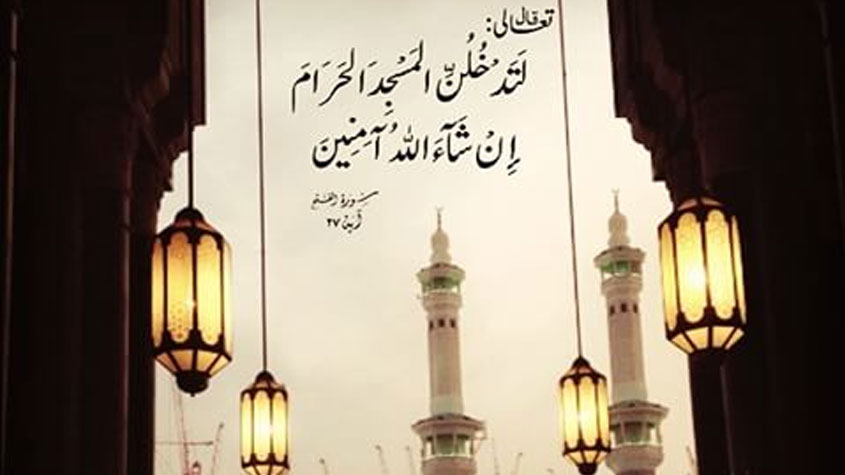 قال تعالى:
لَتَدْخُلُنَّ المَسْجِدَ الحَرَامَ
إِنْ شَآءَ اللهُ آمِنِينَ
سورة الفتح
آية ٢٧